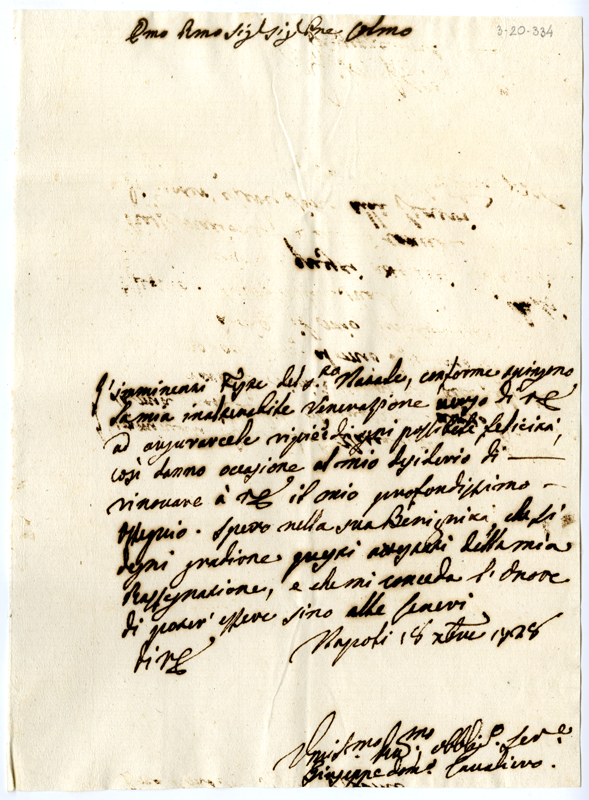 Emo Rmo Sig.r Sig.r Pne Colmo
3-20-334
L'imminenti Feste del S.to Natale, conforme spingono
la mia inalterabile Venerazione verso di VE
ad augurarcele ripiene di ogni possibile felicità,
così danno occasione al mio desiderio di
rinovare à VE il mio profondissimo
ossequio. Spero nella sua Benignità, che si
degni gradire questi attestati della mia
Rassegnazione, e che mi conceda l'onore
di poter' essere sino alle Ceneri
di VE
Napoli 18 xbre 1728
Umilmo obblig.o Ser.e
Giuseppe Dom.o Cavaliero.